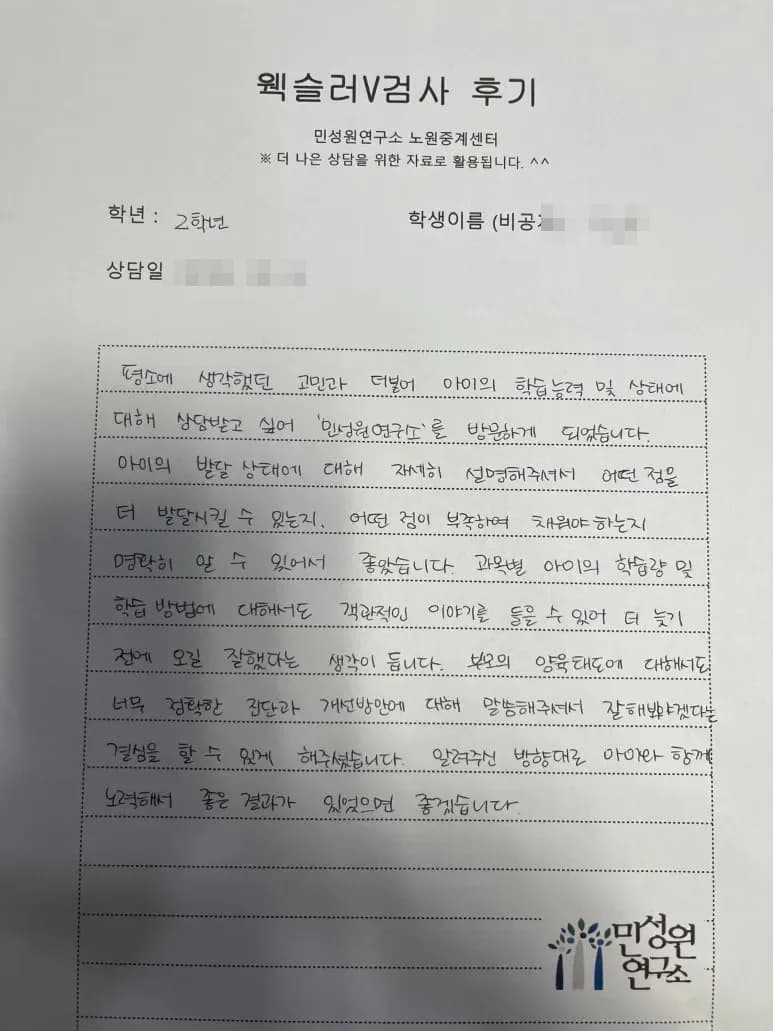 웩슬러V검사 후기
민성원연구소 노원중계센터
※ 더 나은 상담을 위한 자료로 활용됩니다. ^^
학년 : 2학년
학생이름 (비공
상담일
평소에 생각했던 고민과 더불어 아이의 학습능력 및 상태에
대해 상담받고 싶어 '민성원연구소'를 방문하게 되었습니다.
아이의 발달 상태에 대해 자세히 설명해주셔서 어떤 점을
더 발달시킬 수 있는지, 어떤 점이 부족하여 채워야 하는지
명확히 알 수 있어서 좋았습니다. 과목별 아이의 학습량 및
학습 방법에 대해서도 객관적인 이야기를 들을 수 있어 더 늦기
전에 오길 잘했다는 생각이 듭니다. 부모의 양육태도에 대해서도
너무 정확한 진단과 개선방안에 대해 말씀해주셔서 잘해봐야겠다는
결심을 할 수 있게 해주셨습니다. 알려주신 방향대로 아이와 함께
노력해서 좋은 결과가 있었으면 좋겠습니다.
민성원
연구소